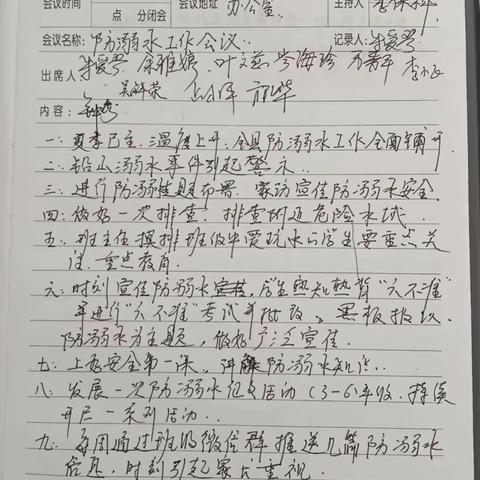 会议时间 点 分闭会 会议地址 办公室 主持人
会议名称: 防溺水工作会议. 记录人:
出席人
内容:
一:夏季已至、温度上升、全县防溺水工作全面铺开
二:铅山溺水事件引起警示.
三、进行防溺水 布署、家访宣传防溺水安全.
四:做好一次排查、排查附近危险水域.
五、班主任摸排班级中爱玩水的学生要重点关
注.重点教育.
六:时刻宣传防溺水 学生熟知熟背"六不准"
并进行"六不准"考试并批改、黑板报以
防溺水为主题,做好广泛宣传.
七:上好安全第一课,讲解防溺水知识.
八、发展一次防溺水 活动(3-6)年级.持续
开展一系列活动.
九、每周通过班级微信群推送几篇防溺水
信息,时刻引起家长重视.